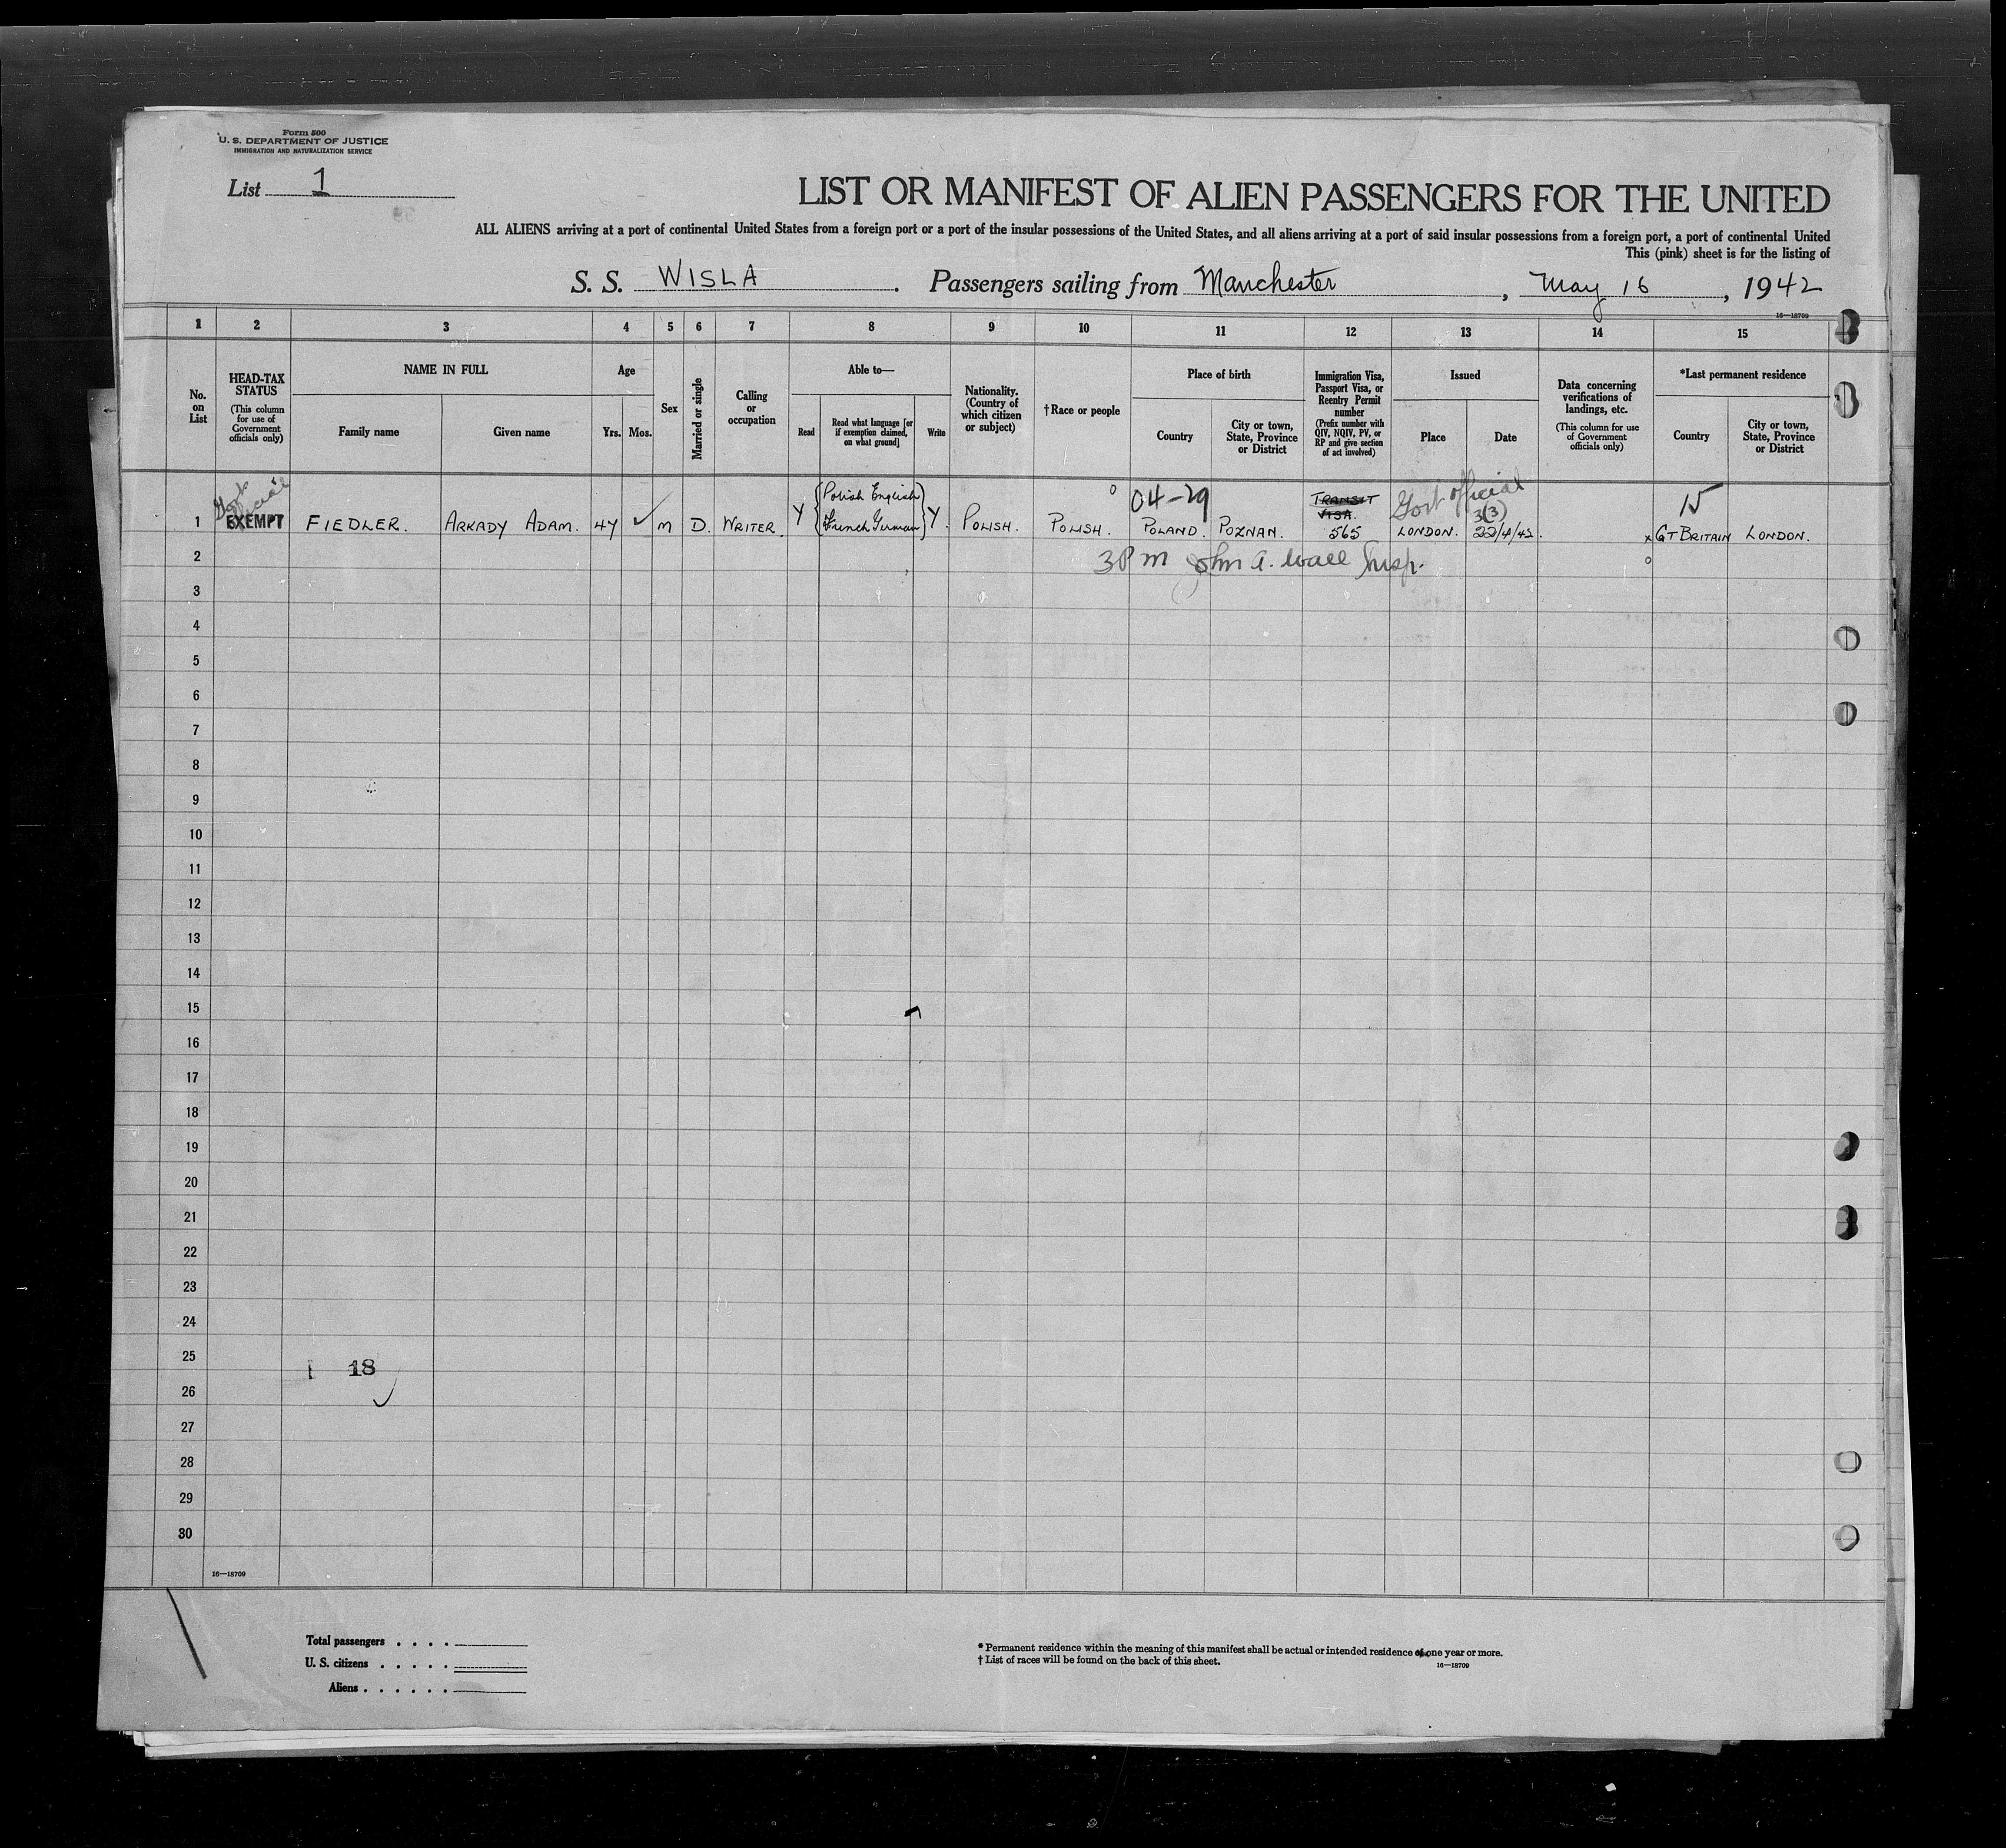 Form 500
U. S. DEPARTMENT OF JUSTICE
IMMIGRATION AND NATURALIZATION SERVICE
List 1
LIST OR MANIFEST OF ALIEN PASSENGERS FOR THE UNITED
ALL ALIENS arriving at a port of continental United States from a foreign port or a port of the insular possessions of the United States, and all aliens arriving at a port of said insular possessions from a foreign port, a port of continental United
This (pink) sheet is for the listing of
S. S. WISLA. Passengers sailing from Manchester, May 16, 1942
16—18709
1 2 3 4 5 6 7 8 9 10 11 12 13 14 15
No. on List
HEAD-TAX STATUS (This column for use of Government officials only)
NAME IN FULL
Family name
Given name
Age
Yrs. Mos.
Sex
Married or single
Calling or occupation
Able to—
Read
Read what language [or if exemption claimed, on what ground]
Write
Nationality. (Country of which citizen or subject)
†Race or people
Place of birth
Country
City or town, State, Province or District
Immigration Visa, Passport Visa, or Reentry Permit number (Prefix number with QIV, NQIV, PV, or RP and give section of act involved)
Issued
Place
Date
Data concerning verifications of landings, etc. (This column for use of Government officials only)
*Last permanent residence
Country
City or town, State, Province or District
Govt official
04-29
TRANSIT VISA.
Govt official
3(3)
15
1 EXEMPT FIEDLER. ARKADY ADAM. 47 ✓ M D. WRITER. Y {Polish English French German} Y. POLISH. POLISH. POLAND. POZNAN. 565 LONDON. 22/4/42. x GT BRITAIN LONDON.
2 3 PM John A. Wall Insp.
3
4
5
6
7
8
9
10
11
12
13
14
15
16
17
18
19
20
21
22
23
24
25
18
26
27
28
29
30
16—18709
Total passengers . . . .
U. S. citizens . . . . .
Aliens . . . . . .
* Permanent residence within the meaning of this manifest shall be actual or intended residence of one year or more.
† List of races will be found on the back of this sheet.
16—18709